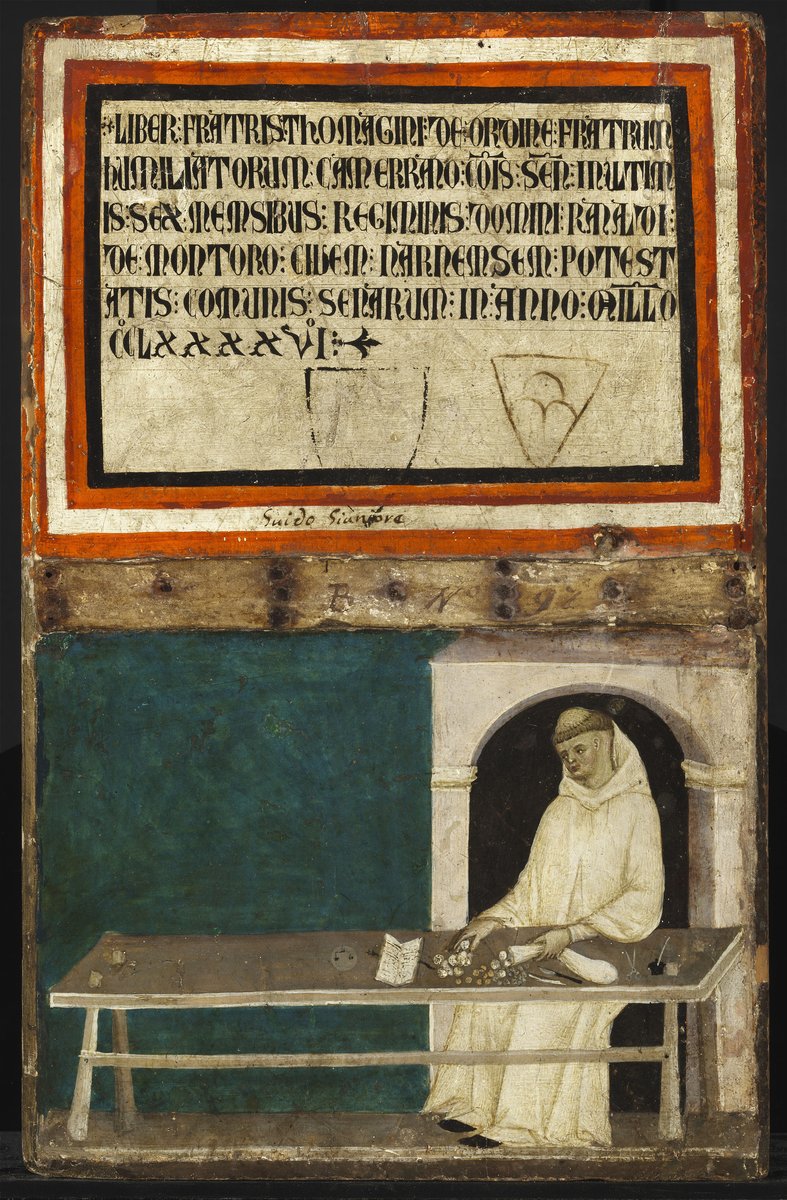 LIBER:FRATRIS:THOMAGINI:DE:ORDINE:FRATRUM
HUMILIATORUM:CAMERRARIO:COIS:SEN:INULTIM
IS:SEX:MEMSIBUS:REGIMINIS:DOMINI:RANALDI:
DE:MONTORO:CIVEM:NARNEMSEM:POTEST
ATIS:COMUNIS:SENARUM:IN:ANNO:MILLO
CCLXXXXVI:
Guido
B N° 92